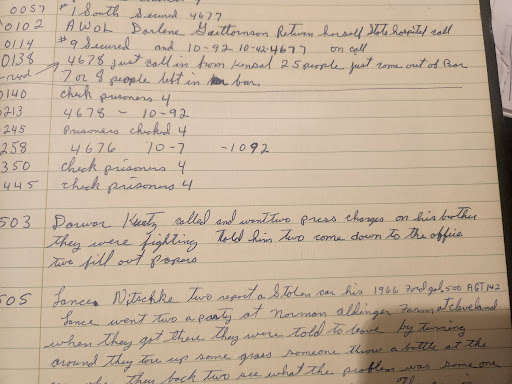 0057 #1 South Secured 4677
0102 AWOL Darlene Gaittornson Return herself State hospital call
0114 #9 Secured and 10-92 10-42-4677 on call
0138 4678 Just call in from Kensal 25 people just come out of Bar
7 or 8 people left in bar.
0140 check prisoners 4
213 4678 - 10-92
245 Prisoners checked 4
258 4676 10-7 -1092
350 check prisoners 4
445 check prisoners 4
503 called and want two press changes on his brother
they were fighting told him two come down to the office
two fill out papers
505 Lance Nitschke two report a Stolen car his 1966 Ford gal,500 AGT 142
Lance went two a party at Norman aldinger Farm, at Cleveland
when they got there they were told to leave by turning
around they tore up some grass someone throw a bottle at the
they back two see what the problem was some one